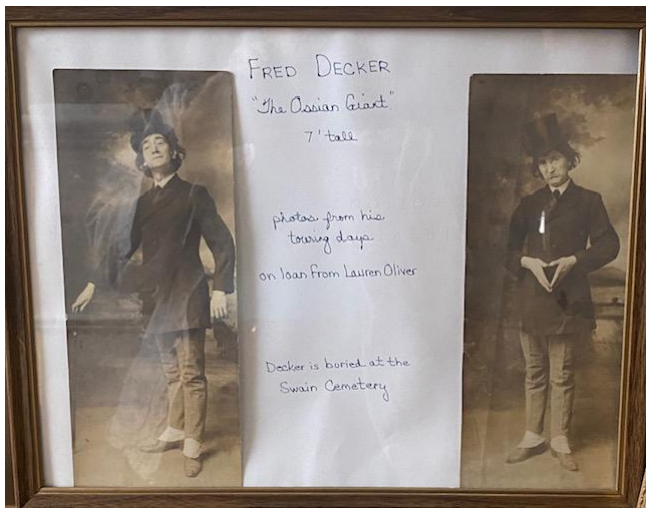 FRED DECKER
"The Ossian Giant"
7' tall
photos from his
touring days
on loan from Lauren Oliver
Decker is boried at the
Swain Cemetery